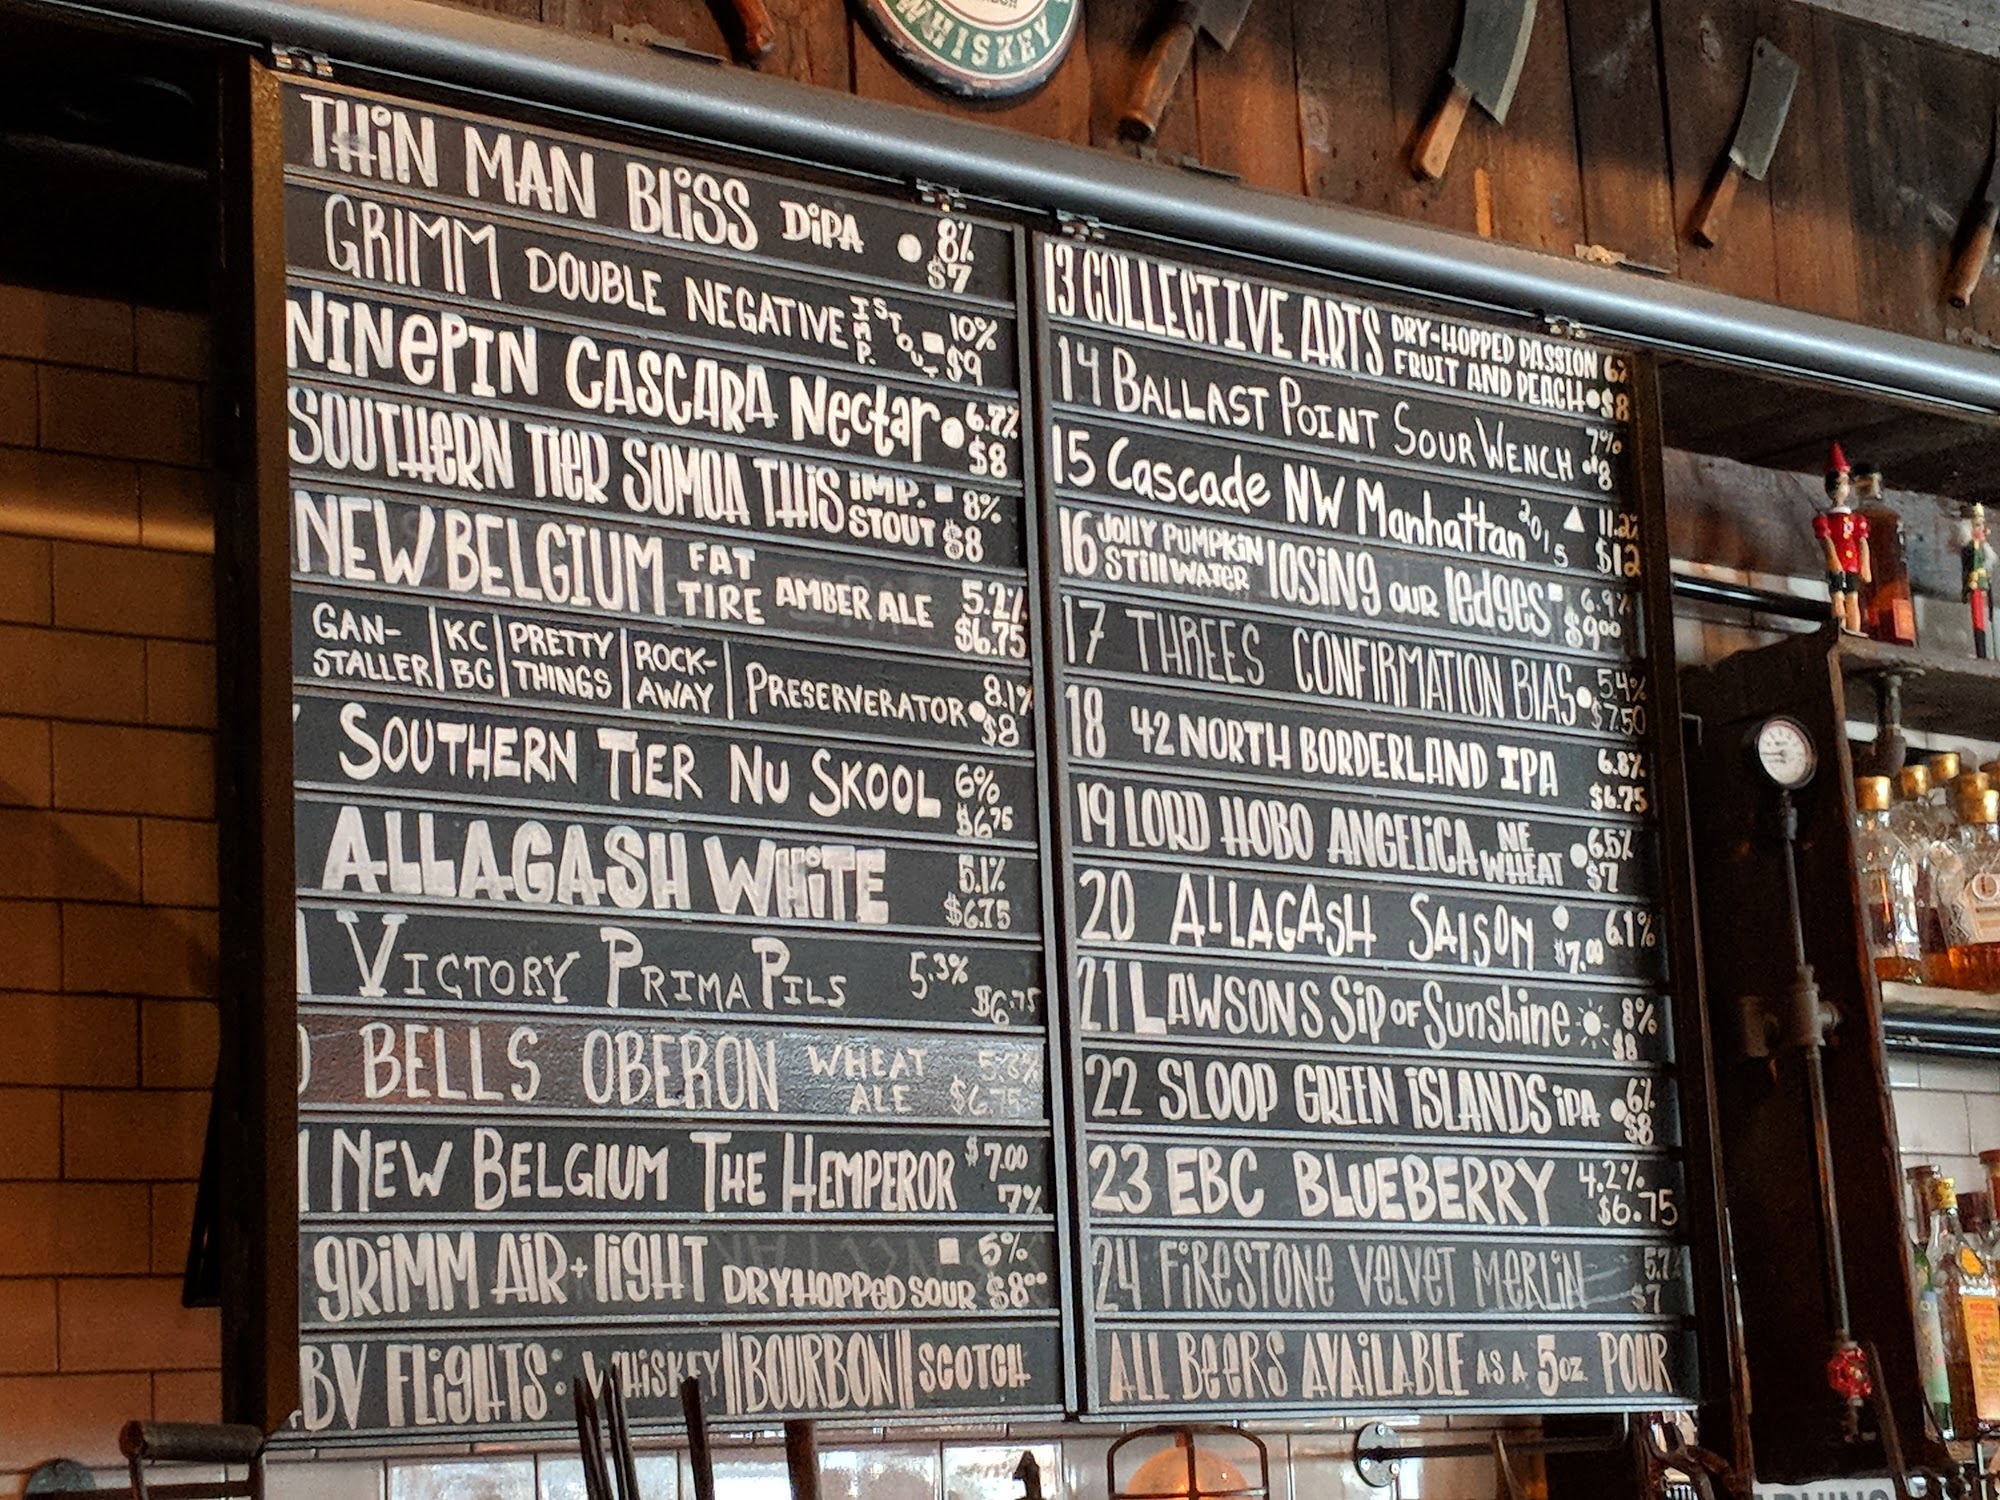 WHISKEY
THIN MAN BLISS DIPA 8% $7
GRIMM DOUBLE NEGATIVE IMP. STOUT 10% $9
NINEPIN CASCARA NECTAR 6.7% $8
SOUTHERN TIER SOMOA THIS IMP. STOUT 8% $8
NEW BELGIUM FAT TIRE AMBER ALE 5.2% $6.75
GAN-STALLER | KCBC | PRETTY THINGS | ROCK-AWAY | PRESERVERATOR 8.1% $8
SOUTHERN TIER NU SKOOL 6% $6.75
ALLAGASH WHITE 5.1% $6.75
VICTORY PRIMA PILS 5.3% $6.75
BELLS OBERON WHEAT ALE 5.8% $6.75
NEW BELGIUM THE HEMPEROR $7.00 7%
GRIMM AIR + LIGHT DRYHOPPED SOUR 5% $8.00
BV FLIGHTS: WHISKEY || BOURBON || SCOTCH
13 COLLECTIVE ARTS DRY-HOPPED PASSION FRUIT AND PEACH 6% $8
14 BALLAST POINT SOUR WENCH 7% $8
15 Cascade NW Manhattan 2015 11.2% $12
16 JOLLY PUMPKIN STILLWATER LOSING OUR LEDGES 6.9% $9.00
17 THREES CONFIRMATION BIAS 5.4% $7.50
18 42 NORTH BORDERLAND IPA 6.8% $6.75
19 LORD HOBO ANGELICA NE WHEAT 6.5% $7
20 ALLAGASH SAISON 6.1% $7.00
21 LAWSONS Sip OF Sunshine 8% $8
22 SLOOP GREEN ISLANDS IPA 6% $8
23 EBC BLUEBERRY 4.2% $6.75
24 FIRESTONE VELVET MERLIN 5.7% $7
ALL BEERS AVAILABLE AS A 5oz. POUR